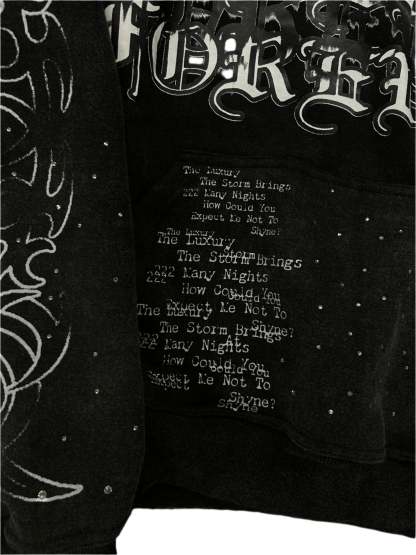 FOREV
The Luxury
The Storm Brings
222 Many Nights
How Could You
Expect Me Not To
Shyne?
The Luxury
The Luxury
Storm
The Storm Brings
222 Many Nights
222
How Could You
Could You
Expect Me Not To
The Luxury
Shyne?
The Storm Brings
At
222 Many Nights
How Could You
Could You
Expect Me Not To
Expect
Shyne?
Shyne